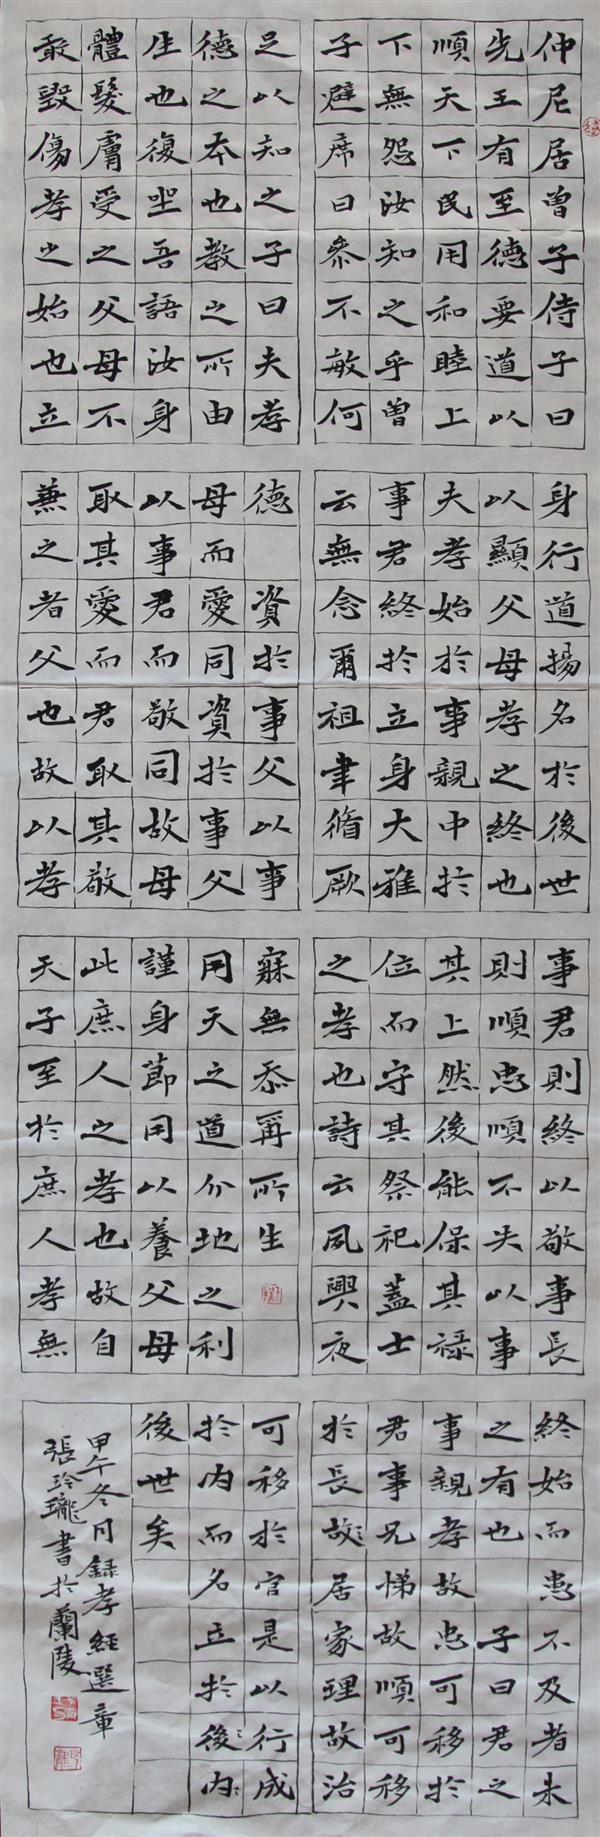 仲尼居曾子侍子曰
先王有至德要道以
順天下民用和睦上
下無怨汝知之乎曾
子避席曰參不敏何
足以知之子曰夫孝
德之本也教之所由
生也復坐吾語汝身
體髮膚受之父母不
敢毀傷孝之始也立
身行道揚名於後世
以顯父母孝之終也
夫孝始於事親中於
事君終於立身大雅
云無念爾祖聿脩厥
德 資於事父以事
母而愛同資於事父
以事君而敬同故母
取其愛而君取其敬
兼之者父也故以孝
事君則終以敬事長
則順忠順不失以事
其上然後能保其祿
位而守其祭祀蓋士
之孝也詩云夙興夜
寐無忝爾所生
用天之道分地之利
謹身節用以養父母
此庶人之孝也故自
天子至於庶人孝無
終始而患不及者未
之有也 子曰君之
事親孝故忠可移於
君事兄悌故順可移
於長故居家理故治
可移於官是以行成
於内而名立於後内
後世矣
甲午冬月錄孝經選章
張玲瓏書於蘭陵